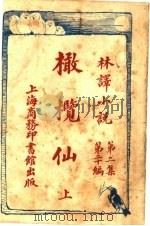 林譯小說
第二集
橄欖仙
上
上海商務印書館出版